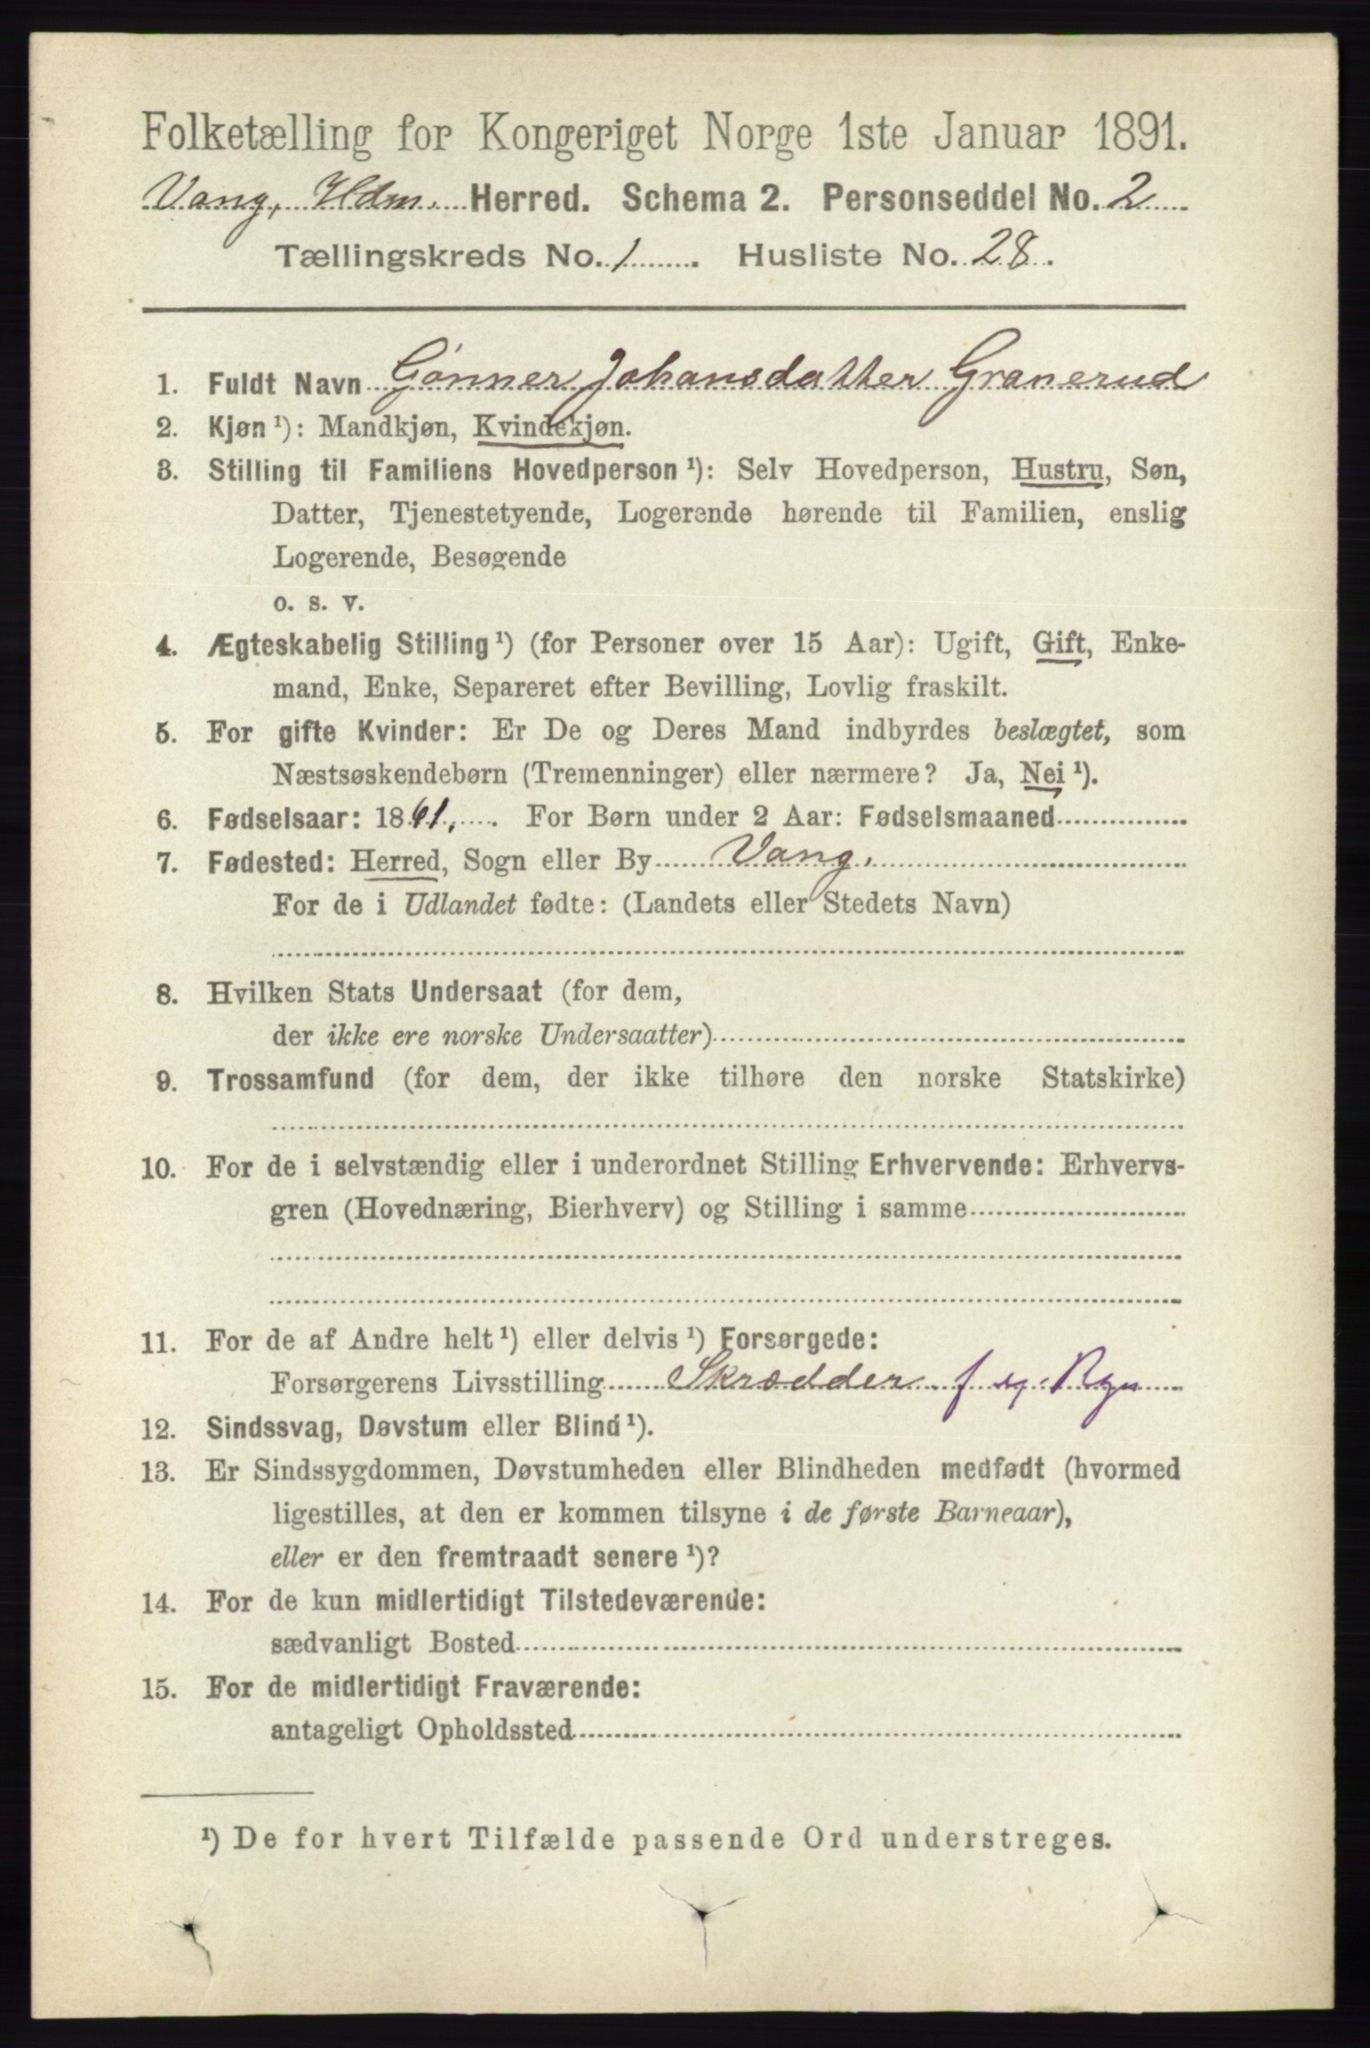 Folketælling for Kongeriget Norge 1ste Januar 1891.
Vang, Hdm. Herred. Schema 2. Personseddel No. 2
Tællingskreds No. 1. Husliste No. 28.
1. Fuldt Navn Gønner Johansdatter Granerud
2. Kjøn ¹): Mandkjøn, Kvindekjøn.
3. Stilling til Familiens Hovedperson ¹): Selv Hovedperson, Hustru, Søn,
Datter, Tjenestetyende, Logerende hørende til Familien, enslig
Logerende, Besøgende
o. s. v.
4. Ægteskabelig Stilling ¹) (for Personer over 15 Aar): Ugift, Gift, Enke-
mand, Enke, Separeret efter Bevilling, Lovlig fraskilt.
5. For gifte Kvinder: Er De og Deres Mand indbyrdes beslægtet, som
Næstsøskendebørn (Tremenninger) eller nærmere? Ja, Nei ¹).
6. Fødselsaar: 1861. For Børn under 2 Aar: Fødselsmaaned
7. Fødested: Herred, Sogn eller By Vang.
For de i Udlandet fødte: (Landets eller Stedets Navn)
8. Hvilken Stats Undersaat (for dem,
der ikke ere norske Undersaatter)
9. Trossamfund (for dem, der ikke tilhøre den norske Statskirke)
10. For de i selvstændig eller i underordnet Stilling Erhvervende: Erhvervs-
gren (Hovednæring, Bierhverv) og Stilling i samme
11. For de af Andre helt ¹) eller delvis ¹) Forsørgede:
Forsørgerens Livsstilling Skrædder f eg. Rgn
12. Sindssvag, Døvstum eller Blind ¹).
13. Er Sindssygdommen, Døvstumheden eller Blindheden medfødt (hvormed
ligestilles, at den er kommen tilsyne i de første Barneaar),
eller er den fremtraadt senere ¹)?
14. For de kun midlertidigt Tilstedeværende:
sædvanligt Bosted
15. For de midlertidigt Fraværende:
antageligt Opholdssted
¹) De for hvert Tilfælde passende Ord understreges.